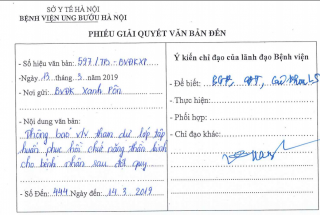 SỞ Y TẾ HÀ NỘI
BỆNH VIỆN UNG BƯỚU HÀ NỘI
PHIẾU GIẢI QUYẾT VĂN BẢN ĐẾN
- Số hiệu văn bản: 597/TB-BVĐKXP
-Ngày 13 tháng 3 năm 2019
- Nơi gửi: BVĐK Xanh Pôn
- Nội dung văn bản:
Thông báo v/v tham dự lớp tập
huấn phục hồi chức năng thần kinh
cho bệnh nhân sau đột quỵ
- Số Đến: 444 Ngày đến: 14.3.2019
Ý kiến chỉ đạo của lãnh đạo Bệnh viện
- Để biết: BGĐ,
- Thực hiện:
- Phối hợp:
- Chỉ đạo khác: